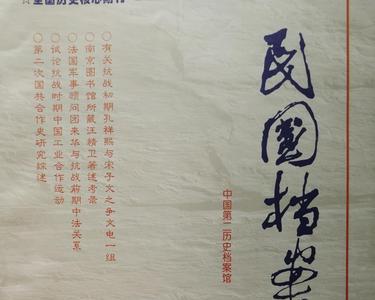 ☆全国历史核心期刊
民国档案
中国第二历史档案馆
○有关抗战初期孔祥熙与宋子文之争文电一组
○南京图书馆所藏汪精卫著述考录
○法国军事顾问团来华与抗战前期中法关系
○试论抗战时期中国工业合作运动
○第二次国共合作史研究综述